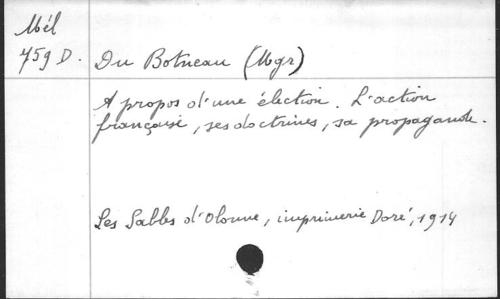 Mél
759 D.
Du Botneau (Mgr)
A propos d'une élection. L'action
française, ses doctrines, sa propagande.
Les Sables d'Olonne, imprimerie Doré, 1914